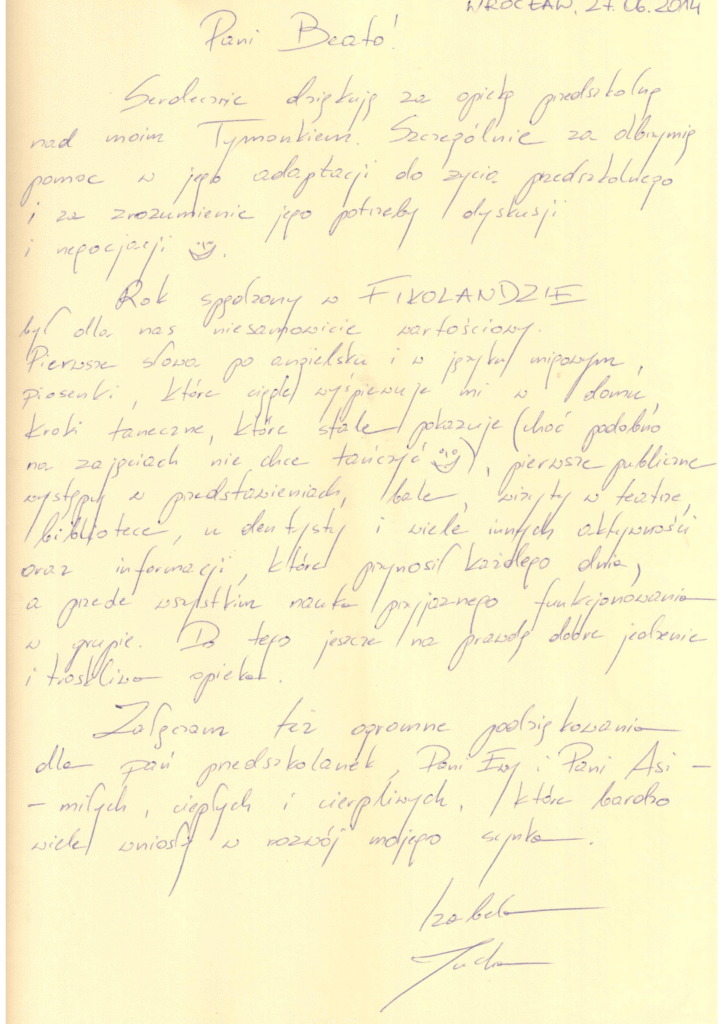 WROCŁAW, 27.06.2014
Pani Beato!
Serdecznie dziękuję za opiekę przedszkolną
nad moim Tymonkiem. Szczególnie za olbrzymią
pomoc w jego adaptacji do życia przedszkolnego
i za zrozumienie jego potrzeby dyskusji
i negocjacji
Rok spędzony w FIKOLANDZIE
był dla nas niesamowicie wartościowy.
Pierwsze słowa po angielsku i w języku migowym,
piosenki, które ciągle wyśpiewuje mi w domu,
kroki taneczne, które stale pokazuje (choć podobno
na zajęciach nie chce tańczyć), pierwsze publiczne
występy w przedstawieniach, bale, wizyty w teatrze,
bibliotece, u dentysty i wiele innych aktywności
oraz informacji, które przynosił każdego dnia,
a przede wszystkim nauka przyjaznego funkcjonowania
w grupie. Do tego jeszcze na prawdę dobre jedzenie
i troskliwa opieka.
Załączam też ogromne podziękowania
dla pań przedszkolanek, Pani Ewy i Pani Asi -
- miłych, ciepłych i cierpliwych, które bardzo
wiele wniosły w rozwój mojego synka.
Izabela